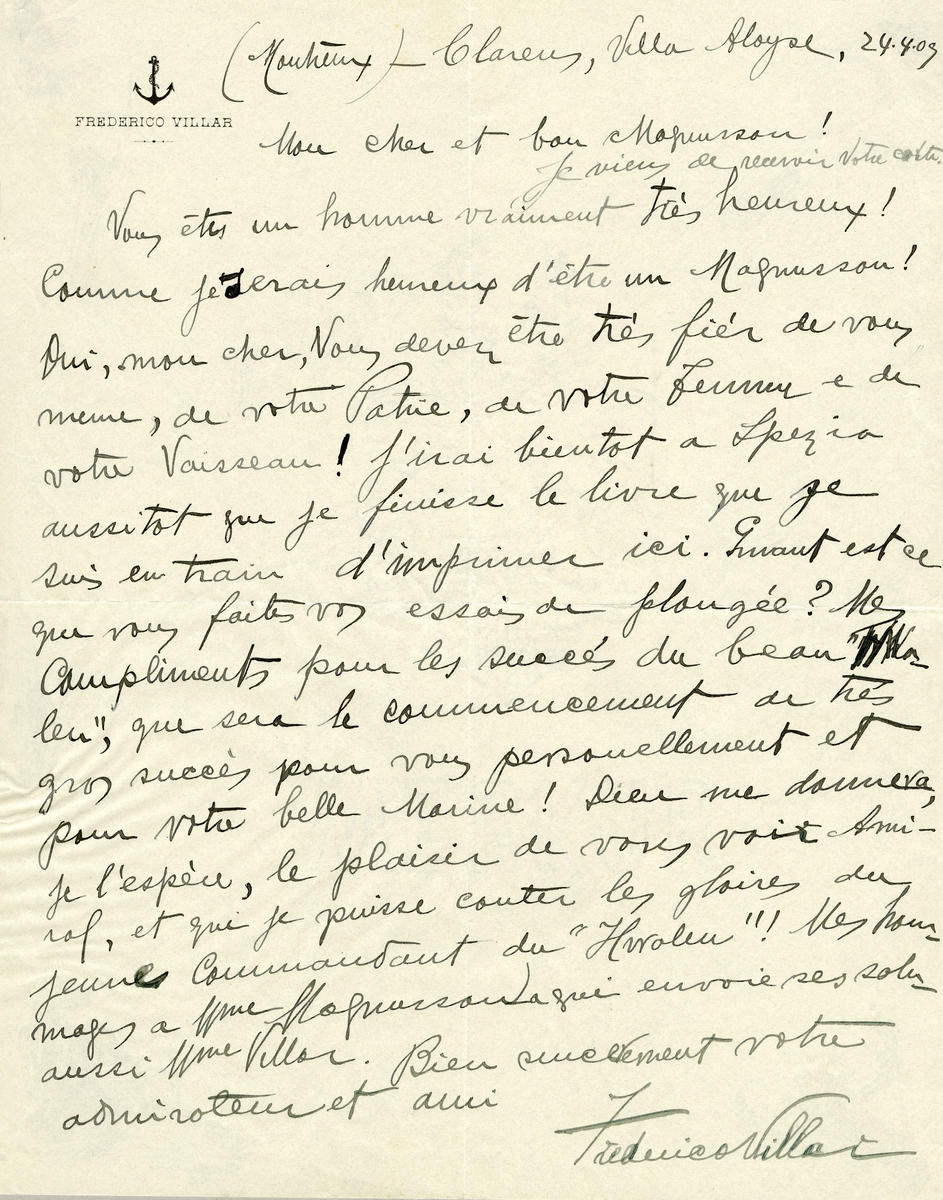 (Montreux) — Clarens, Villa Aloyse, 24.4.09
FREDERICO VILLAR
Mon cher et bon Magnusson!
Je viens de recevoir Votre carte.
Vous êtes un homme vraiment très heureux!
Comme je serais heureux d'être un Magnusson!
Oui, mon cher, Vous devez être très fiér de vous
meme, de votre Patrie, de votre Femme e de
votre Vaisseau! J'irai bientot a Spezia
aussitot que je finisse le livre que je
suis en train d'imprimer ici. Quant est ce
que vous faites vos essais de plongée? Mes
Compliments pour les succés du beau "Hva-
len", que sera le commencement de très
gros succès pour vous personellement et
pour votre belle Marine! Dieu me donnera,
je l'espère, le plaisir de vous voir Ami-
ral, et qui je puisse conter les gloires du
jeune Commandant du "Hvalen"!! Mes hom-
mages a Mme Magnusson, a qui envoie ses salu-
aussi Mme Villar. Bien sincerement votre
admirateur et ami
Frederico Villar